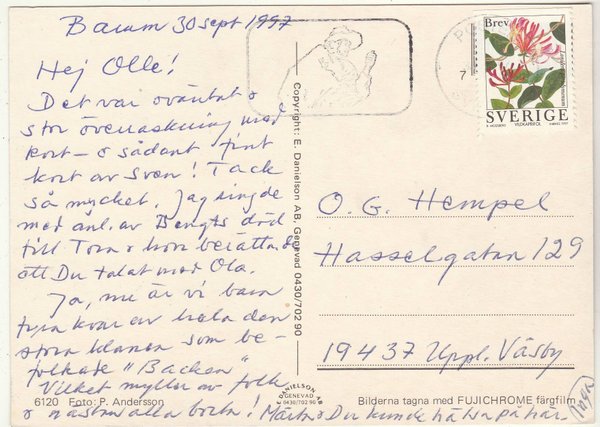 Barum 30 sept 1997
Hej Olle!
Det var oväntat o
stor överraskning med
kort – o sådant fint
kort av Sven! Tack
så mycket. Jag ringde
med anl. av Bengts död
till Tora o hon berättade
att Du talat med Ola.
Ja, nu är vi bara
fyra kvar av hela den
stora klanen som be-
folkade "Backen"
Vilket myller av folk
o nästan alla borta! Märta o Du kunde hälsa på här.
6120 Foto: P. Andersson
Copyright: E. Danielson AB, Genevad 0430/702 90
E. DANIELSON AB
GENEVAD
0430/702 90
Bilderna tagna med FUJICHROME färgfilm
Brev
SVERIGE
VILDKAPRIFOL
7
O. G. Hempel
Hasselgatan 129
19437 Uppl. Väsby